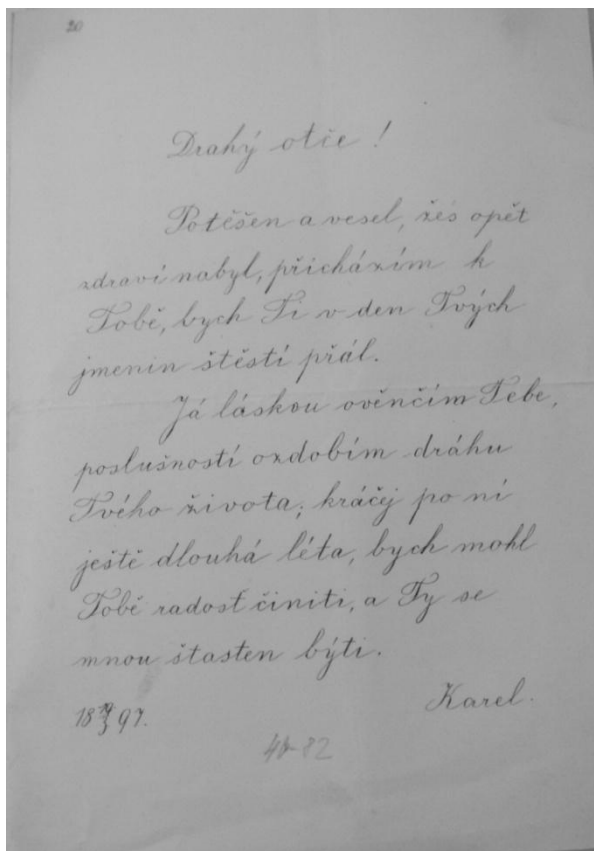 20
Drahý otče!
Potěšen a vesel, žés opět
zdraví nabyl, přicházím k
Tobě, bych Ti v den Tvých
jmenin štěstí přál.
Já láskou ověnčím Tebe,
poslušností ozdobím dráhu
Tvého života; kráčej po ní
ještě dlouhá léta, bych mohl
Tobě radost činiti, a Ty se
mnou štasten býti.
Karel.
18 19/3 97.